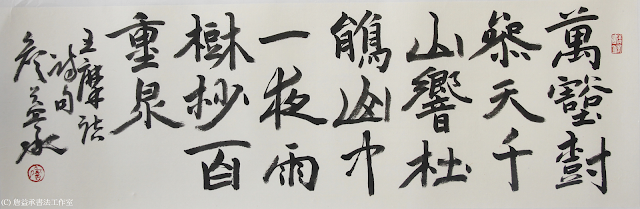 萬壑樹
參天千
山響杜
鵑山中
一夜雨
樹杪百
重泉
王摩詰
詩句
唐益承
(C) 唐益承書法工作室